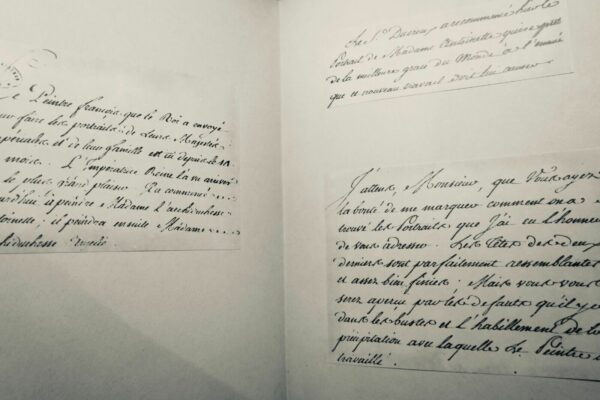 Le Peintre françois que le Roi a envoyé
faire les portraits de Leurs Majestés
et de leur famille est ici depuis le 14
mois. L'Impératrice Reine l'a
le plus grand plaisir. Il a commencé
peindre Madame l'archiduchesse
; il peindra ensuite Madame
Le Sr. Ducreux a recommencé hier le
Portrait de Madame Antoinette qui se prête
de la meilleure grace du Monde à l'ennui
que ce nouveau travail doit lui causer.
J'attens, Monsieur, que Vous ayez
la bonté de me marquer comment on a
trouvé les Portraits que j'ai eu l'honneur
de vous adresser. Les Têtes des deux
derniers sont parfaitement ressemblantes
et assez bien finies; Mais vous vous
serez aperçu par les defauts qu'il y
dans les bustes et l'habillement de la
précipitation avec laquelle Le Peintre
travaillé.